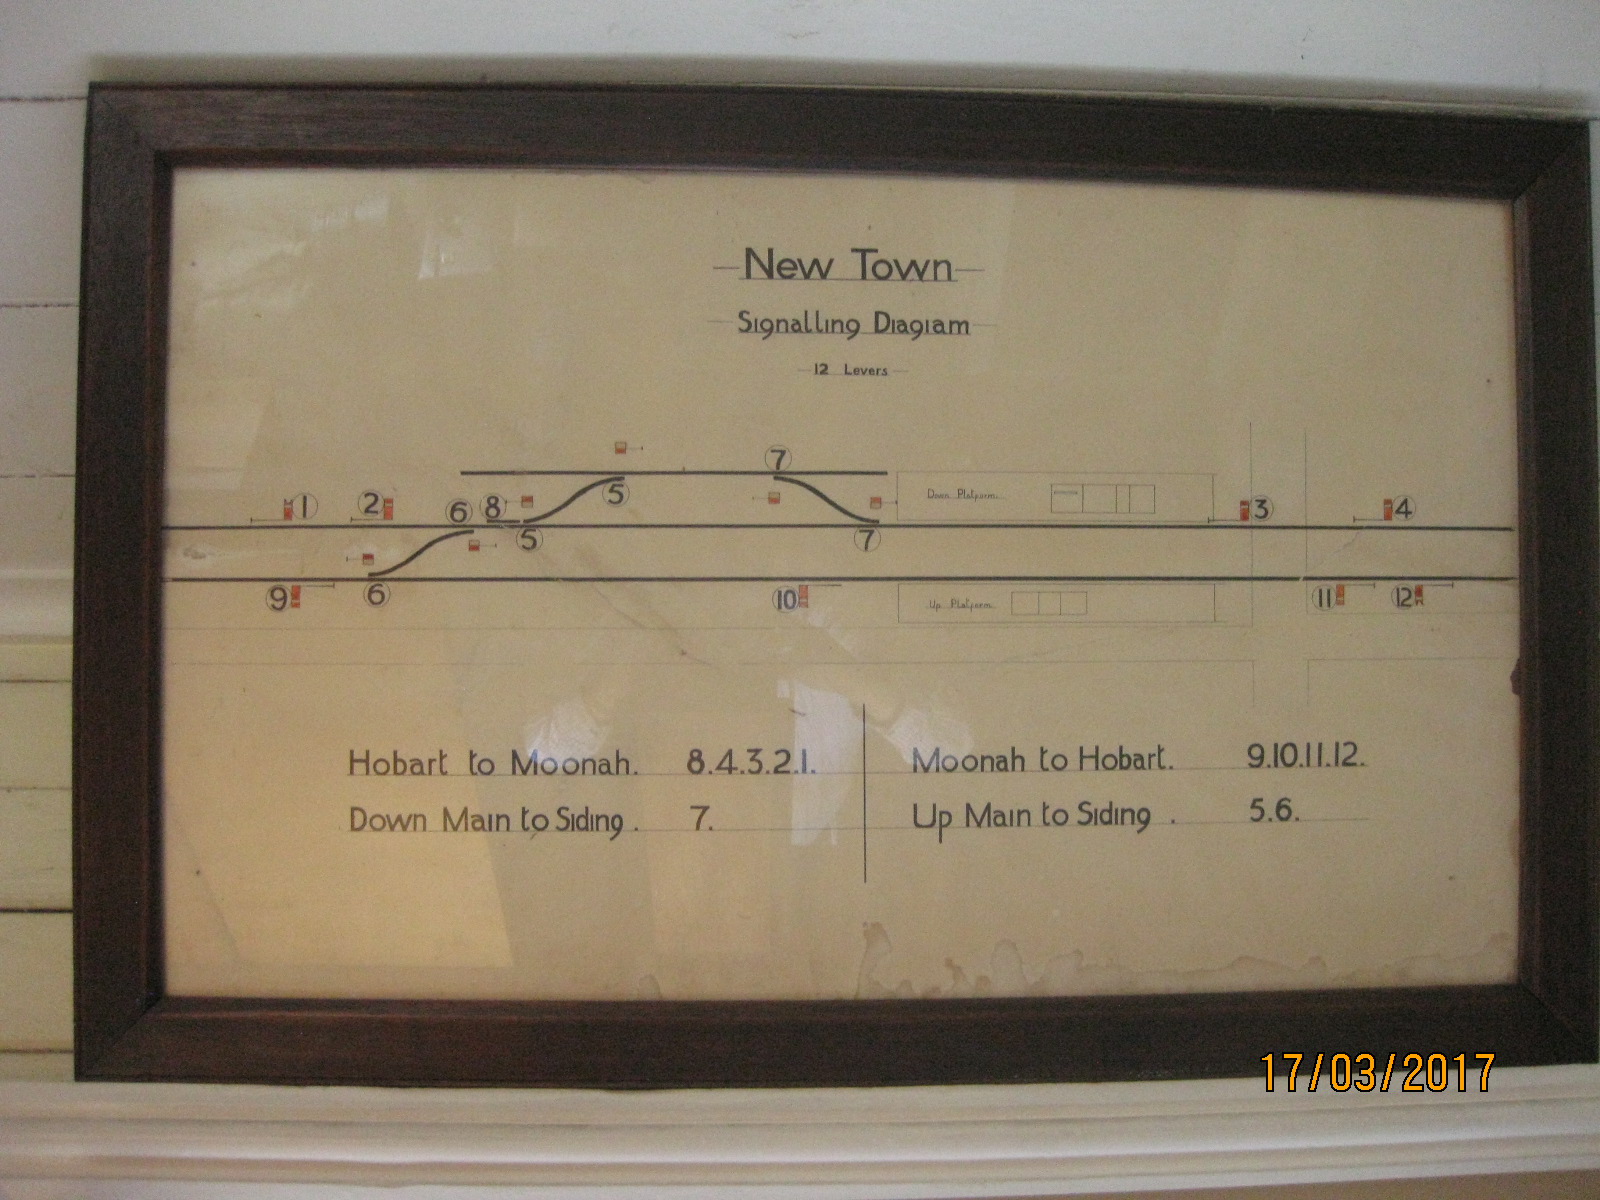 New Town
Signalling Diagram
12 Levers
7
5
1
2
6
8
5
7
Down Platform
3
4
9
6
10
Up Platform
11
12
Hobart to Moonah. 8.4.3.2.1.
Down Main to Siding. 7.
Moonah to Hobart. 9.10.11.12.
Up Main to Siding. 5.6.
17/03/2017